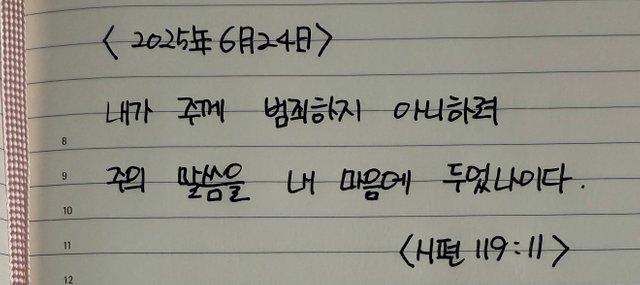 <2025年 6月24日>
내가 주께 범죄하지 아니하려
8
9 주의 말씀을 내 마음에 두었나이다.
10
11 <시편 119:11>
12